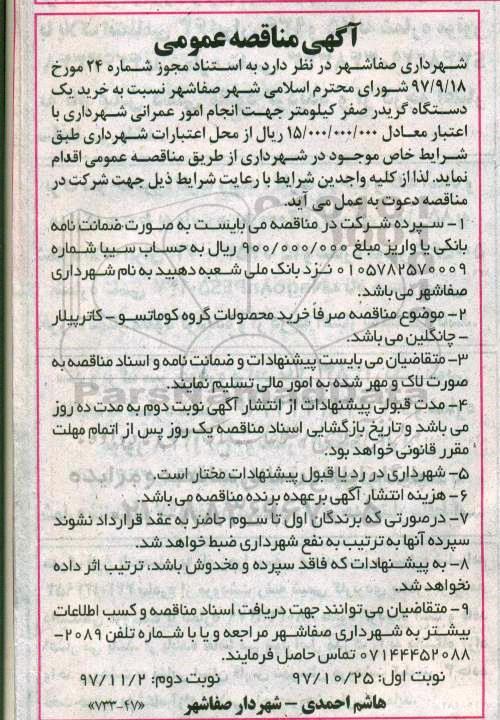 آگهی مناقصه عمومی
شهرداری صفاشهر در نظر دارد به استناد مجوز شماره ۲۴ مورخ
۹۷/۹/۱۸ شورای محترم اسلامی شهر صفاشهر نسبت به خرید یک
دستگاه گریدر صفر کیلومتر جهت انجام امور عمرانی شهرداری با
اعتبار معادل ۱۵/۰۰۰/۰۰۰/۰۰۰ ریال از محل اعتبارات شهرداری طبق
شرایط خاص موجود در شهرداری از طریق مناقصه عمومی اقدام
نماید. لذا از کلیه واجدین شرایط با رعایت شرایط ذیل جهت شرکت در
مناقصه دعوت به عمل می آید.
۱- سپرده شرکت در مناقصه می بایست به صورت ضمانت نامه
بانکی یا واریز مبلغ ۹۰۰/۰۰۰/۰۰۰ ریال به حساب سیبا شماره
۰۱۰۵۷۸۲۵۷۰۰۰۹ نزد بانک ملی شعبه دهبید به نام شهرداری
صفاشهر می باشد.
۲- موضوع مناقصه صرفاً خرید محصولات گروه کوماتسو - کاترپیلار
- چانگلین می باشد.
۳- متقاضیان می بایست پیشنهادات و ضمانت نامه و اسناد مناقصه به
صورت لاک و مهر شده به امور مالی تسلیم نمایند.
۴- مدت قبولی پیشنهادات از انتشار آگهی نوبت دوم به مدت ده روز
می باشد و تاریخ بازگشایی اسناد مناقصه یک روز پس از اتمام مهلت
مقرر قانونی خواهد بود.
۵- شهرداری در رد یا قبول پیشنهادات مختار است.
۶- هزینه انتشار آگهی برعهده برنده مناقصه می باشد.
۷- در صورتی که برندگان اول تا سوم حاضر به عقد قرارداد نشوند
سپرده آنها به ترتیب به نفع شهرداری ضبط خواهد شد.
۸- به پیشنهادات که فاقد سپرده و مخدوش باشد، ترتیب اثر داده
نخواهد شد.
۹- متقاضیان می توانند جهت دریافت اسناد مناقصه و کسب اطلاعات
بیشتر به شهرداری صفاشهر مراجعه و یا با شماره تلفن ۲۰۸۹-
۰۷۱۴۴۴۵۲۰۸۸ تماس حاصل فرمایند.
نوبت اول: ۹۷/۱۰/۲۵ نوبت دوم: ۹۷/۱۱/۲
هاشم احمدی - شهردار صفاشهر «۷۳۳-۴۷»